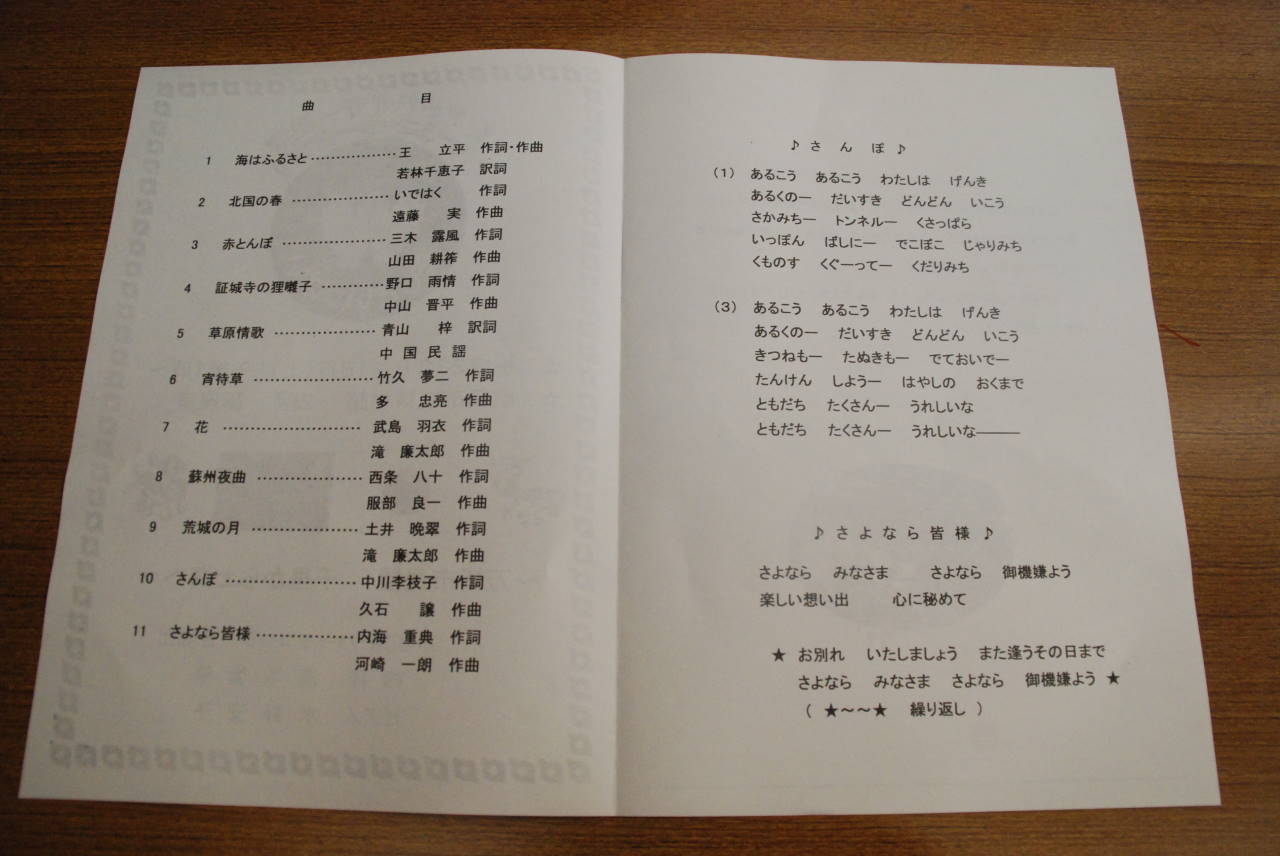 曲 目
1 海はふるさと ……………… 王 立平 作詞・作曲
若林千恵子 訳詞
2 北国の春 ……………… いではく 作詞
遠藤 実 作曲
3 赤とんぼ ……………… 三木 露風 作詞
山田 耕筰 作曲
4 証城寺の狸囃子 ………… 野口 雨情 作詞
中山 晋平 作曲
5 草原情歌 ……………… 青山 梓 訳詞
中国民謡
6 宵待草 ………………… 竹久 夢二 作詞
多 忠亮 作曲
7 花 …………………… 武島 羽衣 作詞
滝 廉太郎 作曲
8 蘇州夜曲 ……………… 西条 八十 作詞
服部 良一 作曲
9 荒城の月 ……………… 土井 晩翠 作詞
滝 廉太郎 作曲
10 さんぽ ………………… 中川李枝子 作詞
久石 譲 作曲
11 さよなら皆様 …………… 内海 重典 作詞
河崎 一朗 作曲
♪ さ ん ぽ ♪
(1) あるこう あるこう わたしは げんき
あるくのー だいすき どんどん いこう
さかみちー トンネルー くさっぱら
いっぽん ばしにー でこぼこ じゃりみち
くものす くぐーってー くだりみち
(3) あるこう あるこう わたしは げんき
あるくのー だいすき どんどん いこう
きつねもー たぬきもー でておいでー
たんけん しようー はやしの おくまで
ともだち たくさんー うれしいな
ともだち たくさんー うれしいな———
♪ さ よ な ら 皆 様 ♪
さよなら みなさま さよなら 御機嫌よう
楽しい想い出 心に秘めて
★ お別れ いたしましょう また逢うその日まで
さよなら みなさま さよなら 御機嫌よう ★
( ★～～★ 繰り返し )